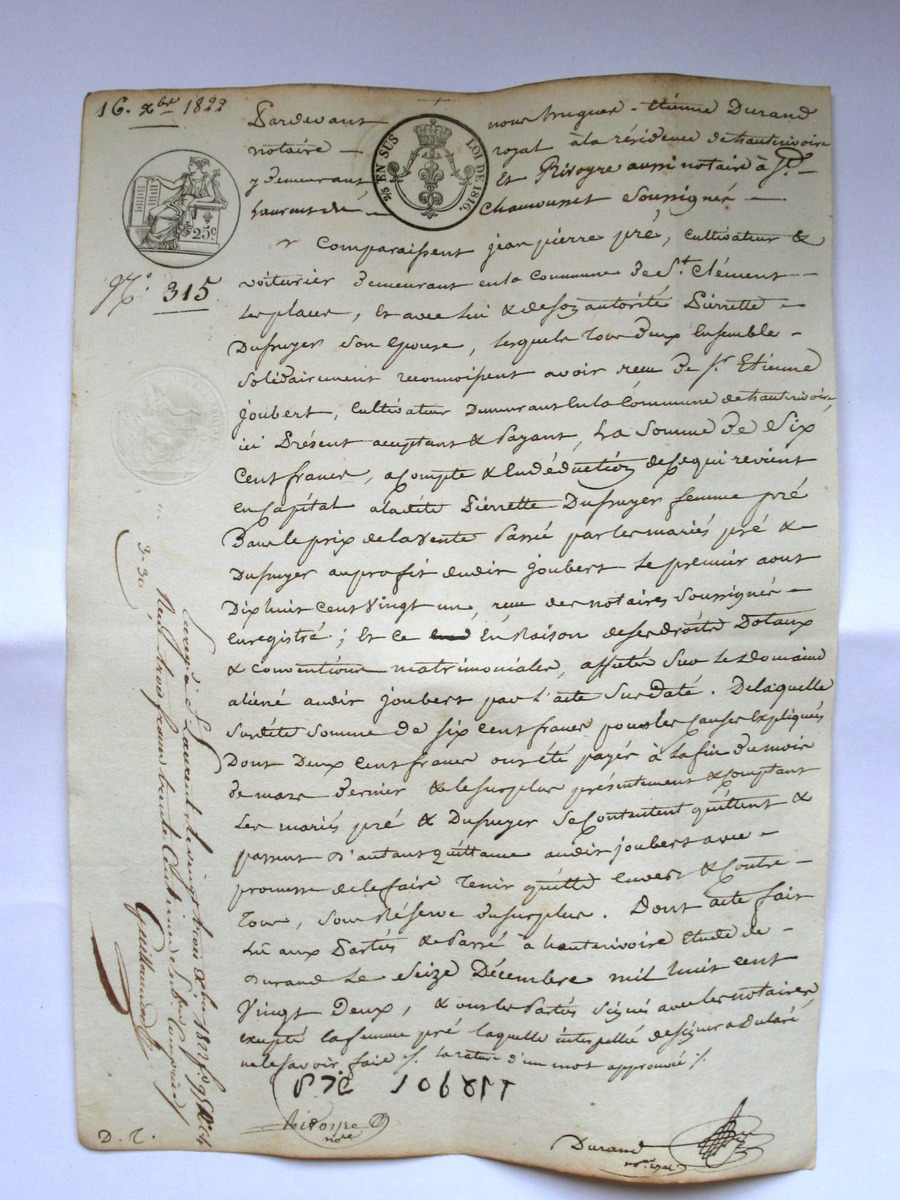 16. xbre 1822
Pardevant nous hugues - Etienne Durand
notaire royal à la résidence de hauterivoire
y demeurant, Et Rivoyre aussi notaire à St
Laurent de Chamousset soussignés
EN SUS LOI DE 1816.
25c
No. 315
Comparaissent jean pierre pré, cultivateur &
voiturier demeurant en la commune de St. Clément
les places, Et avec lui & de son autorité Pierrette
Dufruyer son épouse, lesquels tous deux Ensemble
solidairement reconnoissent avoir reçu de sr. Etienne
joubert, cultivateur demeurant En la Commune de hauterivoire,
ici Présent acceptant & Payant, La somme de Six
Cent francs, acompte & En déduction de Ce qui revient
en Capital à ladite Pierrette Dufruyer femme pré
Dans le prix de la vente Passé par les mariés pré &
Dufruyer au profit dudit joubert le premier aout
Dix huit cent Vingt un, reçu des notaires soussignés
enregistré; Et ce En Raison de ses droits Dotaux
& conventions matrimoniales, affectés sur les domaine
aliéné audit joubert par l'acte Susdaté. De laquelle
susdite Somme de six cent francs pour les Causes Expliqués
Dont Deux Cent francs ont été payés à la fin du mois
de mars dernier & le surplus présentement & comptant
Les mariés pré & Dufruyer se Contentent quittent &
passent d'autant quittance audit joubert avec
promesse de le faire Tenir quitte Envers & Contre
Tous, sous Réserve du surplus. Dont acte fait
Lu aux Parties & Passé à hauterivoire Etude de
Durand Le Seize Décembre mil huit cent
Vingt Deux, & ont les Parties Signé avec les notaires
excepté la femme pré laquelle interpellé de signer a déclaré
ne le savoir faire ./. la rature d'un mot approuvée ./.
Rivoyre
nore
Durand
nore. royal
D. T.
3-30
Enregé à St Laurent le vingt trois xbre 1822 fo 95
Reçu trois francs trente Centimes Subon Comprise
Guillaumet